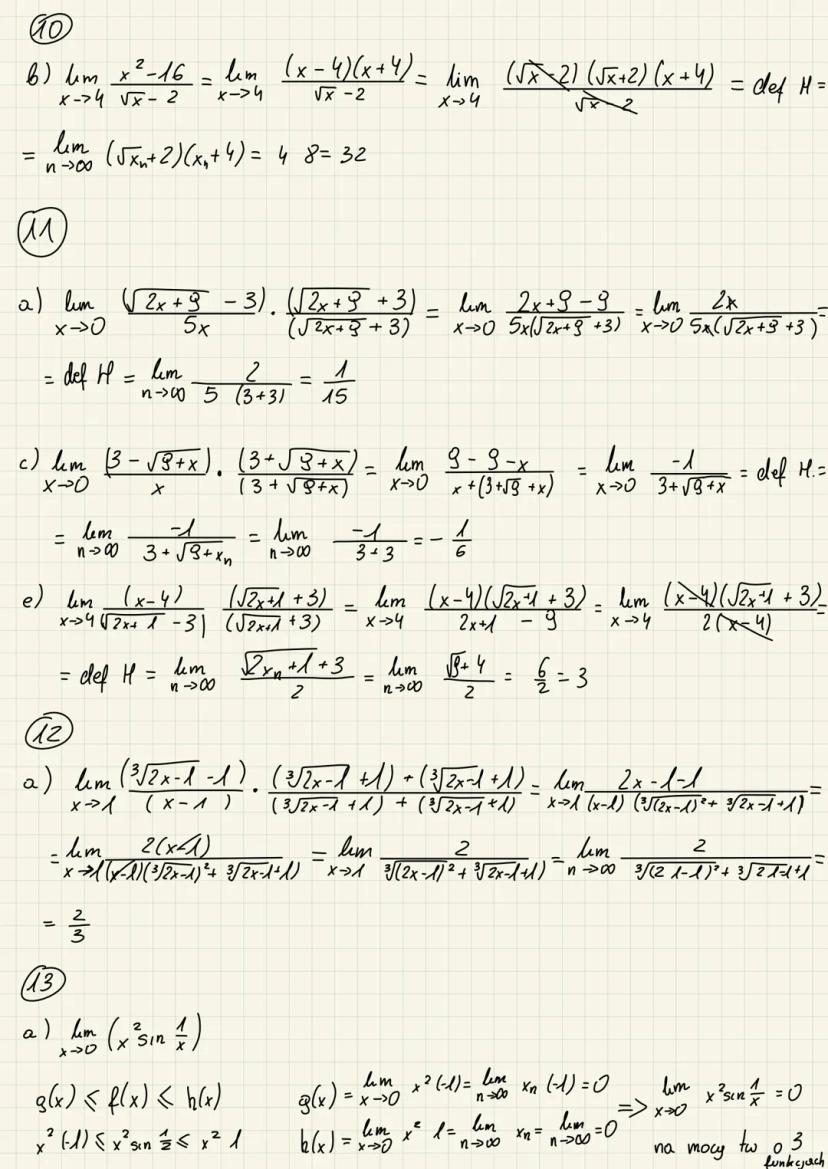 10
b) lim x→4 (x²-16)/(√x - 2) = lim x→4 ((x-4)(x+4))/(√x - 2) = lim x→4 ((√x - 2)(√x+2)(x+4))/(√x - 2) = def H =
= lim n→∞ (√xₙ+2)(xₙ+4) = 4 8 = 32
11
a) lim x→0 (√(2x+9) - 3)/5x · (√(2x+9) + 3)/(√(2x+9) + 3) = lim x→0 (2x+9-9)/(5x(√(2x+9) + 3)) = lim x→0 2x/(5x(√(2x+9) + 3)) =
= def H = lim n→∞ 2/(5 (3+3)) = 1/15
c) lim x→0 (3 - √(9+x))/x · (3+√(9+x))/(3+√(9+x)) = lim x→0 (9-9-x)/(x+(3+√9+x)) = lim x→0 -1/(3+√(9+x)) = def H. =
= lim n→∞ -1/(3+√(9+xₙ)) = lim n→∞ -1/(3+3) = - 1/6
e) lim x→4 (x-4)/(√(2x+1) - 3) (√(2x+1) + 3)/(√(2x+1) + 3) = lim x→4 ((x-4)(√(2x+1) + 3))/(2x+1 - 9) = lim x→4 ((x-4)(√(2x+1) + 3))/(2(x-4)) =
= def H = lim n→∞ (√(2xₙ+1) + 3)/2 = lim n→∞ (√9 + 4)/2 = 6/2 = 3
12
a) lim x→1 (∛(2x-1) - 1)/(x-1) · ((∛(2x-1) + 1) + (∛(2x-1) + 1))/((∛(2x-1) + 1) + (∛(2x-1) + 1)) = lim x→1 (2x-1-1)/((x-1)(∛(2x-1)² + ∛(2x-1) + 1)) =
= lim x→1 2(x-1)/((x-1)(∛(2x-1)² + ∛(2x-1) + 1)) = lim x→1 2/(∛(2x-1)² + ∛(2x-1) + 1) = lim n→∞ 2/(∛(2 1-1)² + ∛(2 1-1) + 1) =
= 2/3
13
a) lim x→0 (x² sin 1/x)
g(x) ≤ f(x) ≤ h(x) g(x) = lim x→0 x²(-1) = lim n→∞ xₙ (-1) = 0 => lim x→0 x² sin 1/x = 0
x²(-1) ≤ x² sin 1/2 ≤ x² 1 h(x) = lim x→0 x² 1 = lim n→∞ xₙ = lim n→∞ = 0 na mocy tw o 3
funkcjach